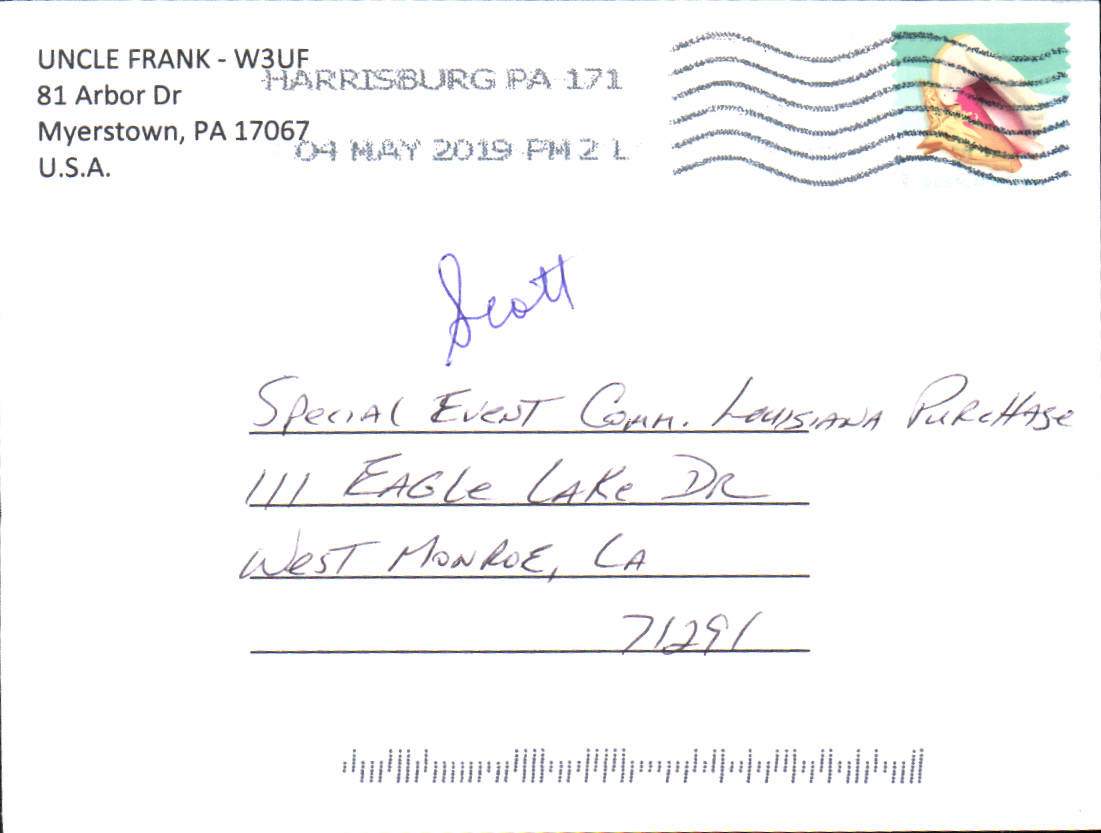 UNCLE FRANK - W3UF
81 Arbor Dr
Myerstown, PA 17067
U.S.A.
HARRISBURG PA 171
04 MAY 2019 PM 2 L
Scott
Special Event Comm. Louisiana Purchase
111 Eagle Lake Dr
West Monroe, LA
71291